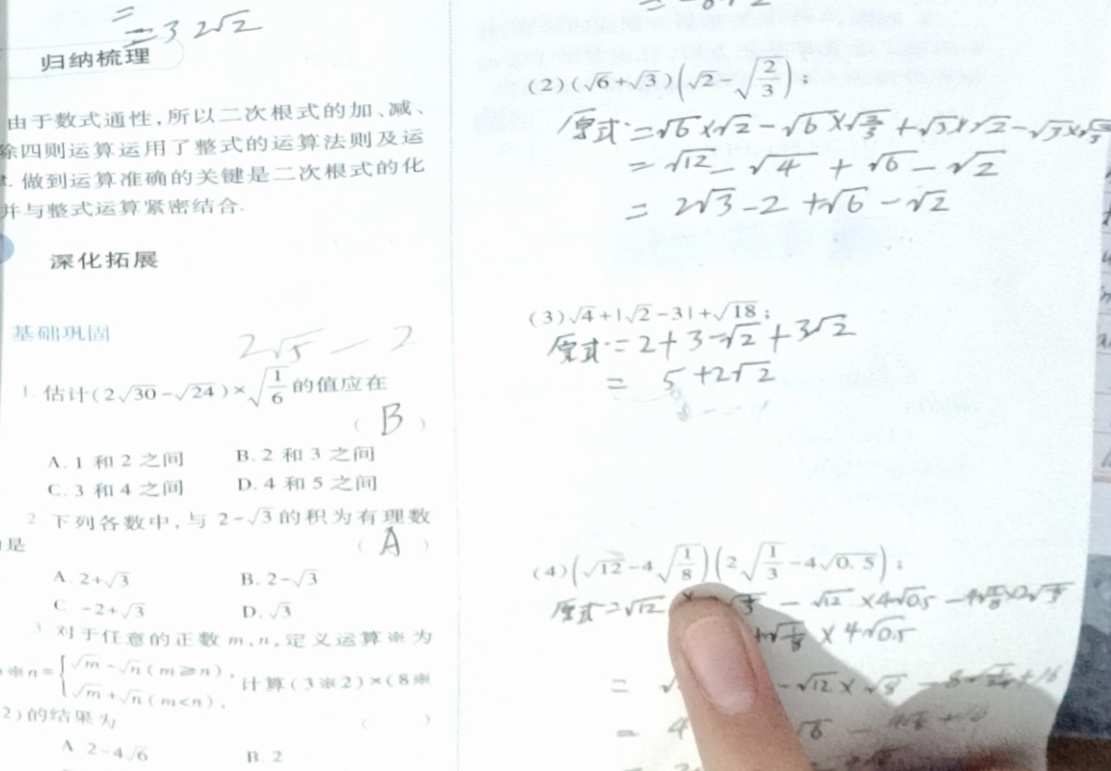 =
= 3 2√2
归纳梳理
由于数式通性,所以二次根式的加、减、
除四则运算运用了整式的运算法则及运
. 做到运算准确的关键是二次根式的化
并与整式运算紧密结合.
深化拓展
基础巩固
2√5 - 2
1. 估计(2√30-√24)×√(1/6)的值应在
( B )
A. 1 和 2 之间 B. 2 和 3 之间
C. 3 和 4 之间 D. 4 和 5 之间
2. 下列各数中,与 2-√3的积为有理数
是 ( A )
A. 2+√3 B. 2-√3
C. -2+√3 D. √3
3. 对于任意的正数 m,n,定义运算※为
※n={√m-√n(m≥n), √m+√n(m<n), 计算(3※2)×(8※
2)的结果为 ( )
A. 2-4√6 B. 2
(2)(√6+√3)(√2-√(2/3));
原式=√6×√2-√6×√(2/3)+√3×√2-√3×√(2/3)
=√12-√4+√6-√2
=2√3-2+√6-√2
(3)√4+|√2-3|+√18;
原式=2+3-√2+3√2
=5+2√2
(4)(√12-4√(1/8))(2√(1/3)-4√0.5);
原式=√12 × - √12×4√0.5-4√(1/8)×2√(1/3)
×4√0.5
= -√12×√8
= 4
=